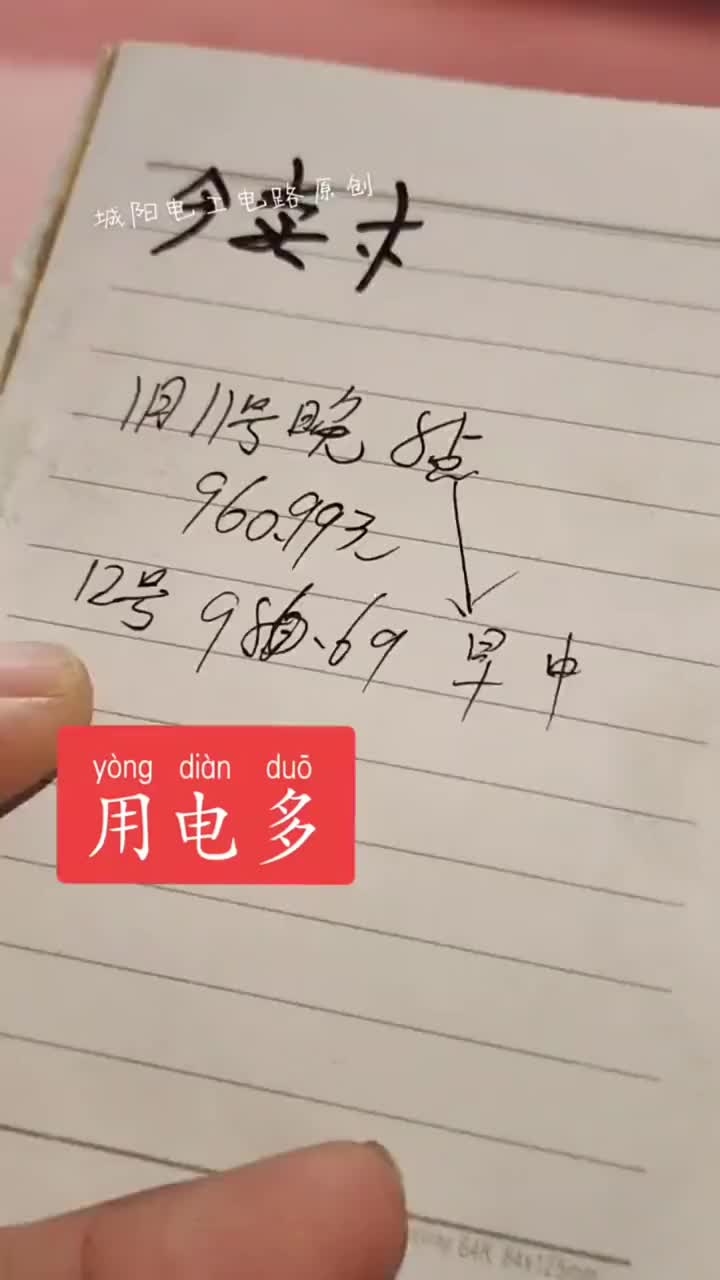 城阳电工电路原创
1月11号晚8点
960.993元
12号 980.69 早中
yòng diàn duō
用电多
64K 84x125mm